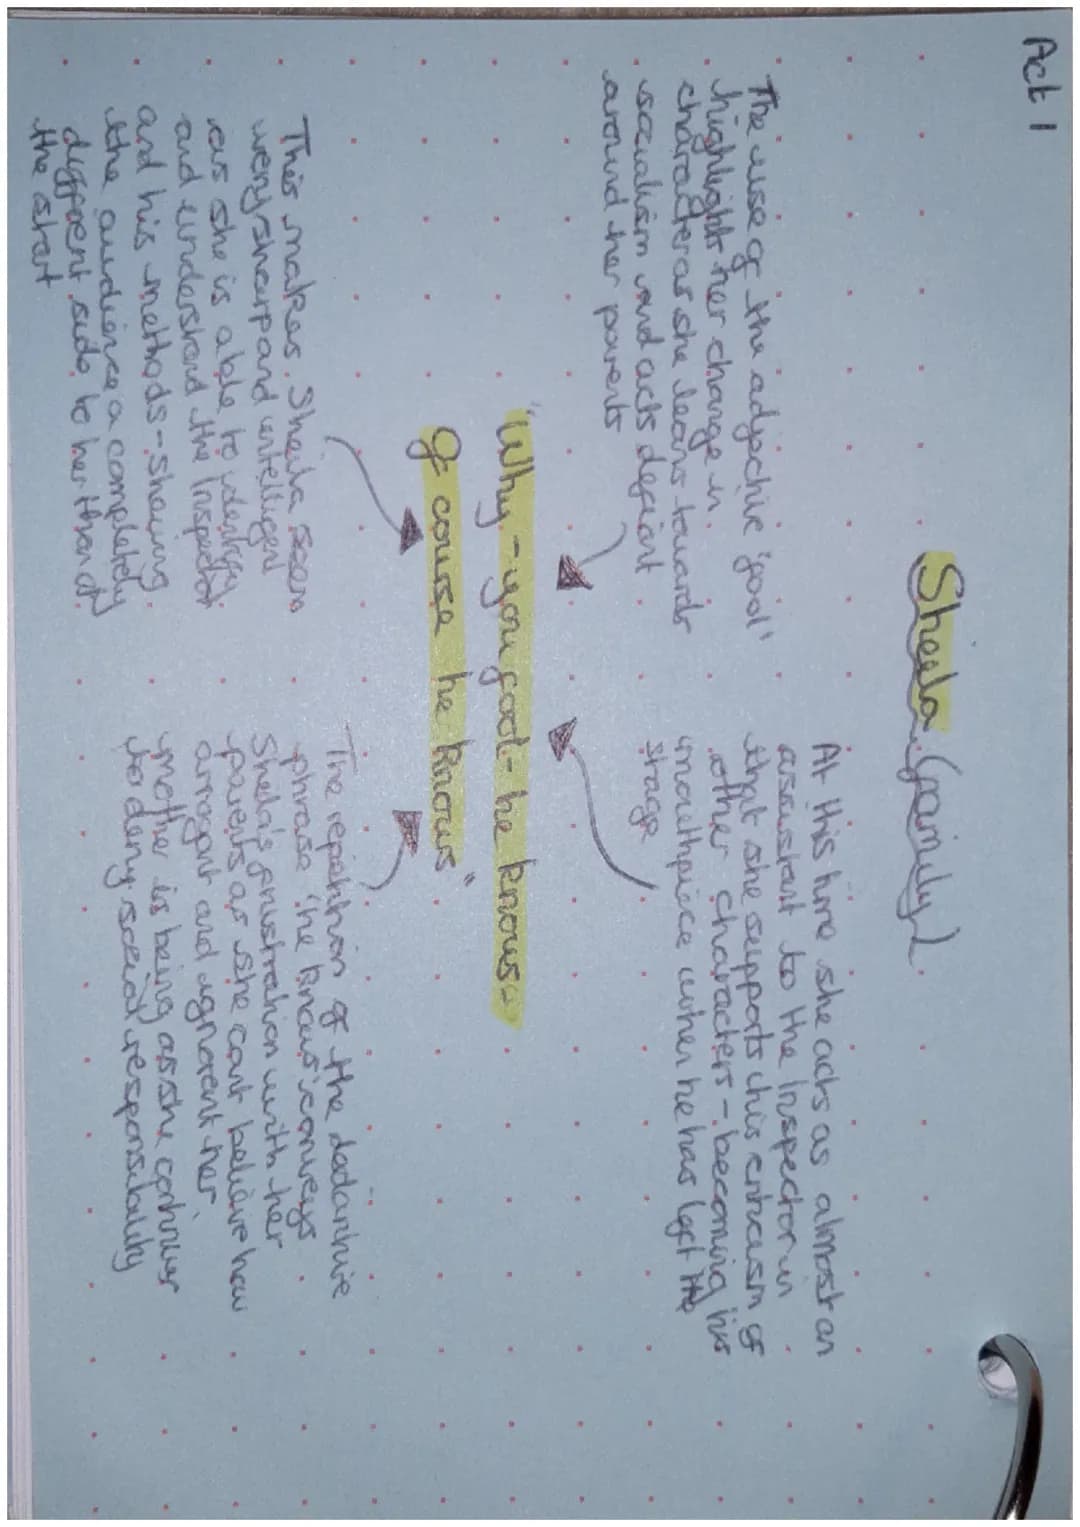 Act 1
Sheila (family)
The use of the adjective 'fool'
highlights her change in
character as she leans towards
socialism and acts defiant
around her parents
At this time she acts as almost an
assistant to the Inspector in
that she supports his criticism of
other characters - becoming his
mouthpiece when he has left the
stage
"Why - you fool - he knows -
Of course he knows"
This makes Sheila seem
very sharp and intelligent
as she is able to identify
and understand the Inspector
and his methods - showing
the audience a completely
different side to her than at
the start
The repetition of the
phrase 'he knows' conveys
Sheila's frustration with her
parents as she cant believe how
arrogant and ignorant her
mother is being as she continues
to deny social responsibility